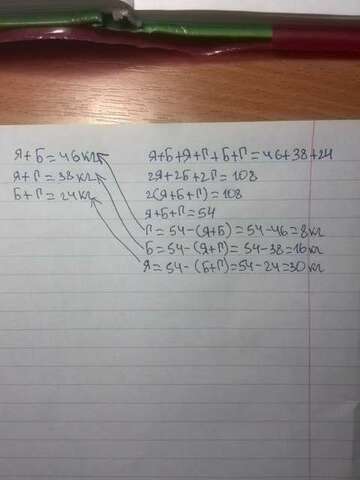 Я+Б=46кг
Я+Г=38кг
Б+Г=24кг
Я+Б+Я+Г+Б+Г=46+38+24
2Я+2Б+2Г=108
2(Я+Б+Г)=108
Я+Б+Г=54
Г=54-(Я+Б)=54-46=8кг
Б=54-(Я+Г)=54-38=16кг
Я=54-(Б+Г)=54-24=30кг